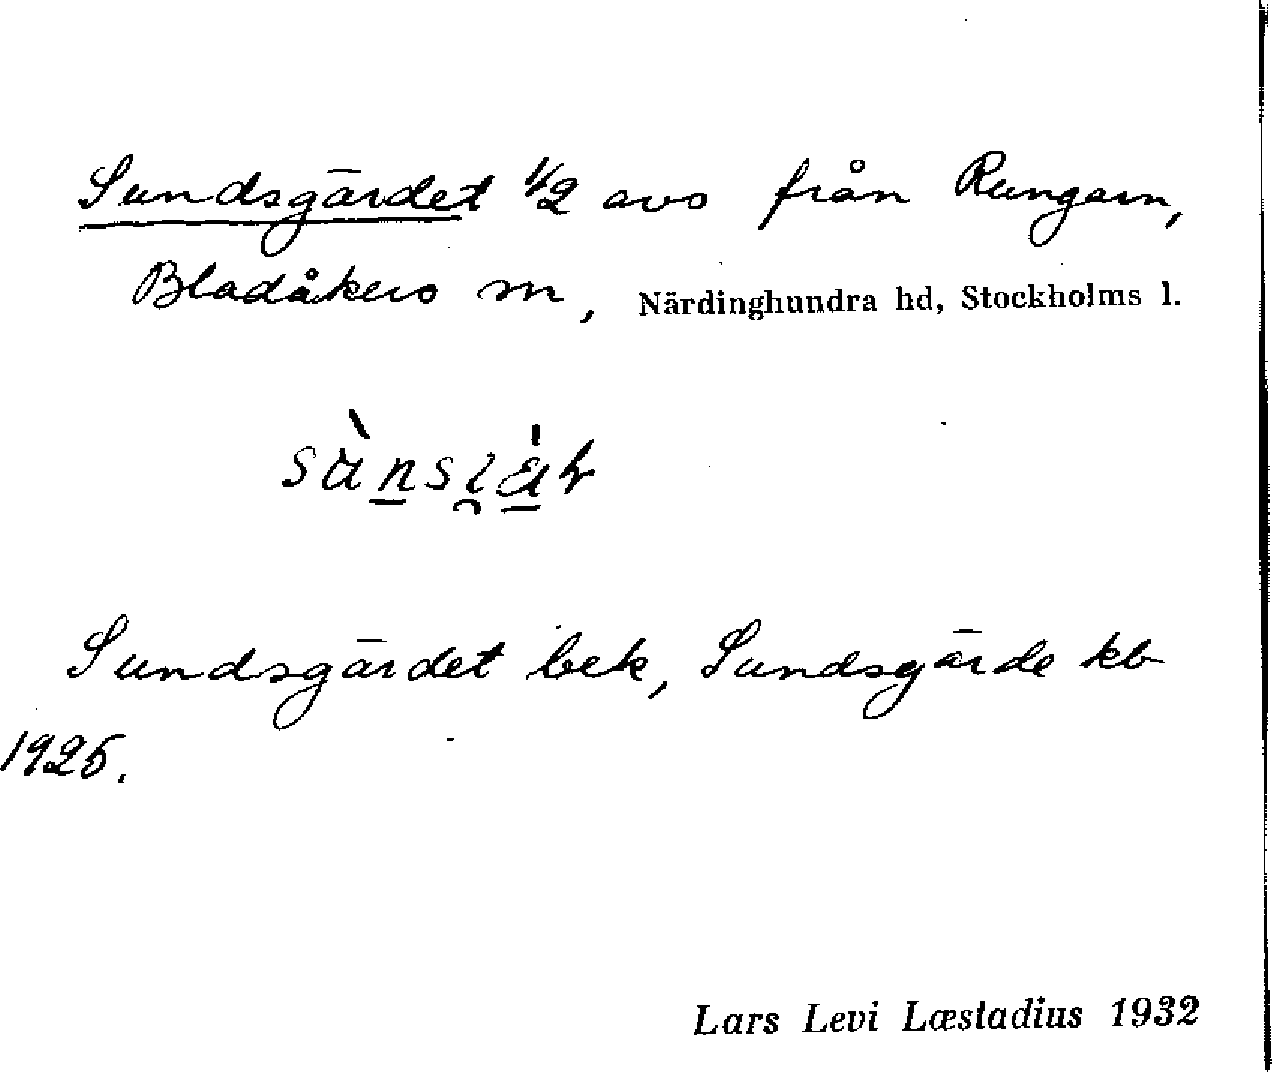 Sundsgärdet 1/2 avs från Rungarn,
Bladåkers sn, Närdinghundra hd, Stockholms l.
Sundsgärdet bek, Sundsgärde kb
1925.
Lars Levi Læstadius 1932